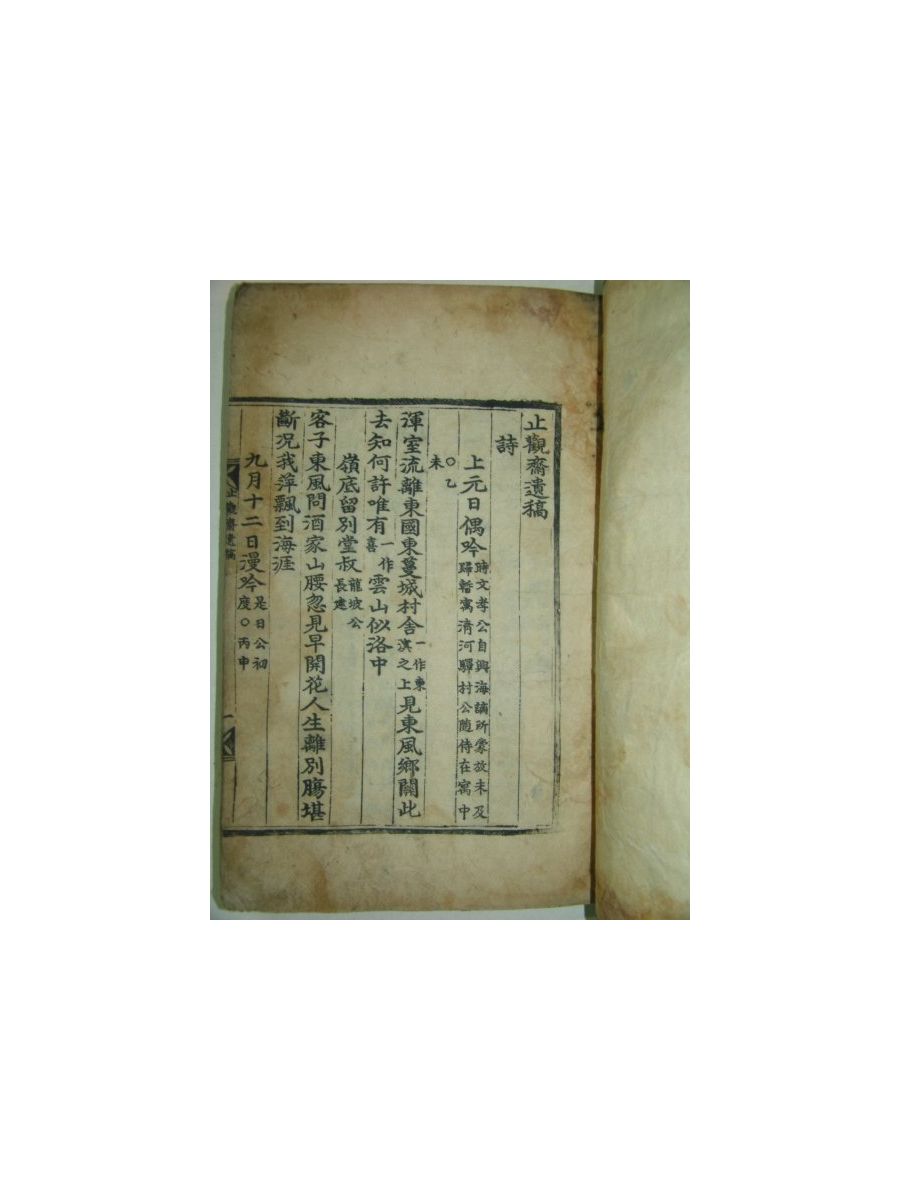 止觀齋遺稿
詩
上元日偶吟 時文孝公自興海謫所蒙放未及歸暫寓清河驛村公隨侍在寓中
○乙未
渾室流離東國東蔓城村舍 一作東溟之上 見東風鄉關此
去知何許唯有 一作喜 雲山似洛中
嶺底留別堂叔 龍坡公長慶
客子東風問酒家山腰忽見早開花人生離別膓堪
斷况我萍飄到海涯
九月十二日漫吟 是日公初度○丙申
止觀齋遺稿
一